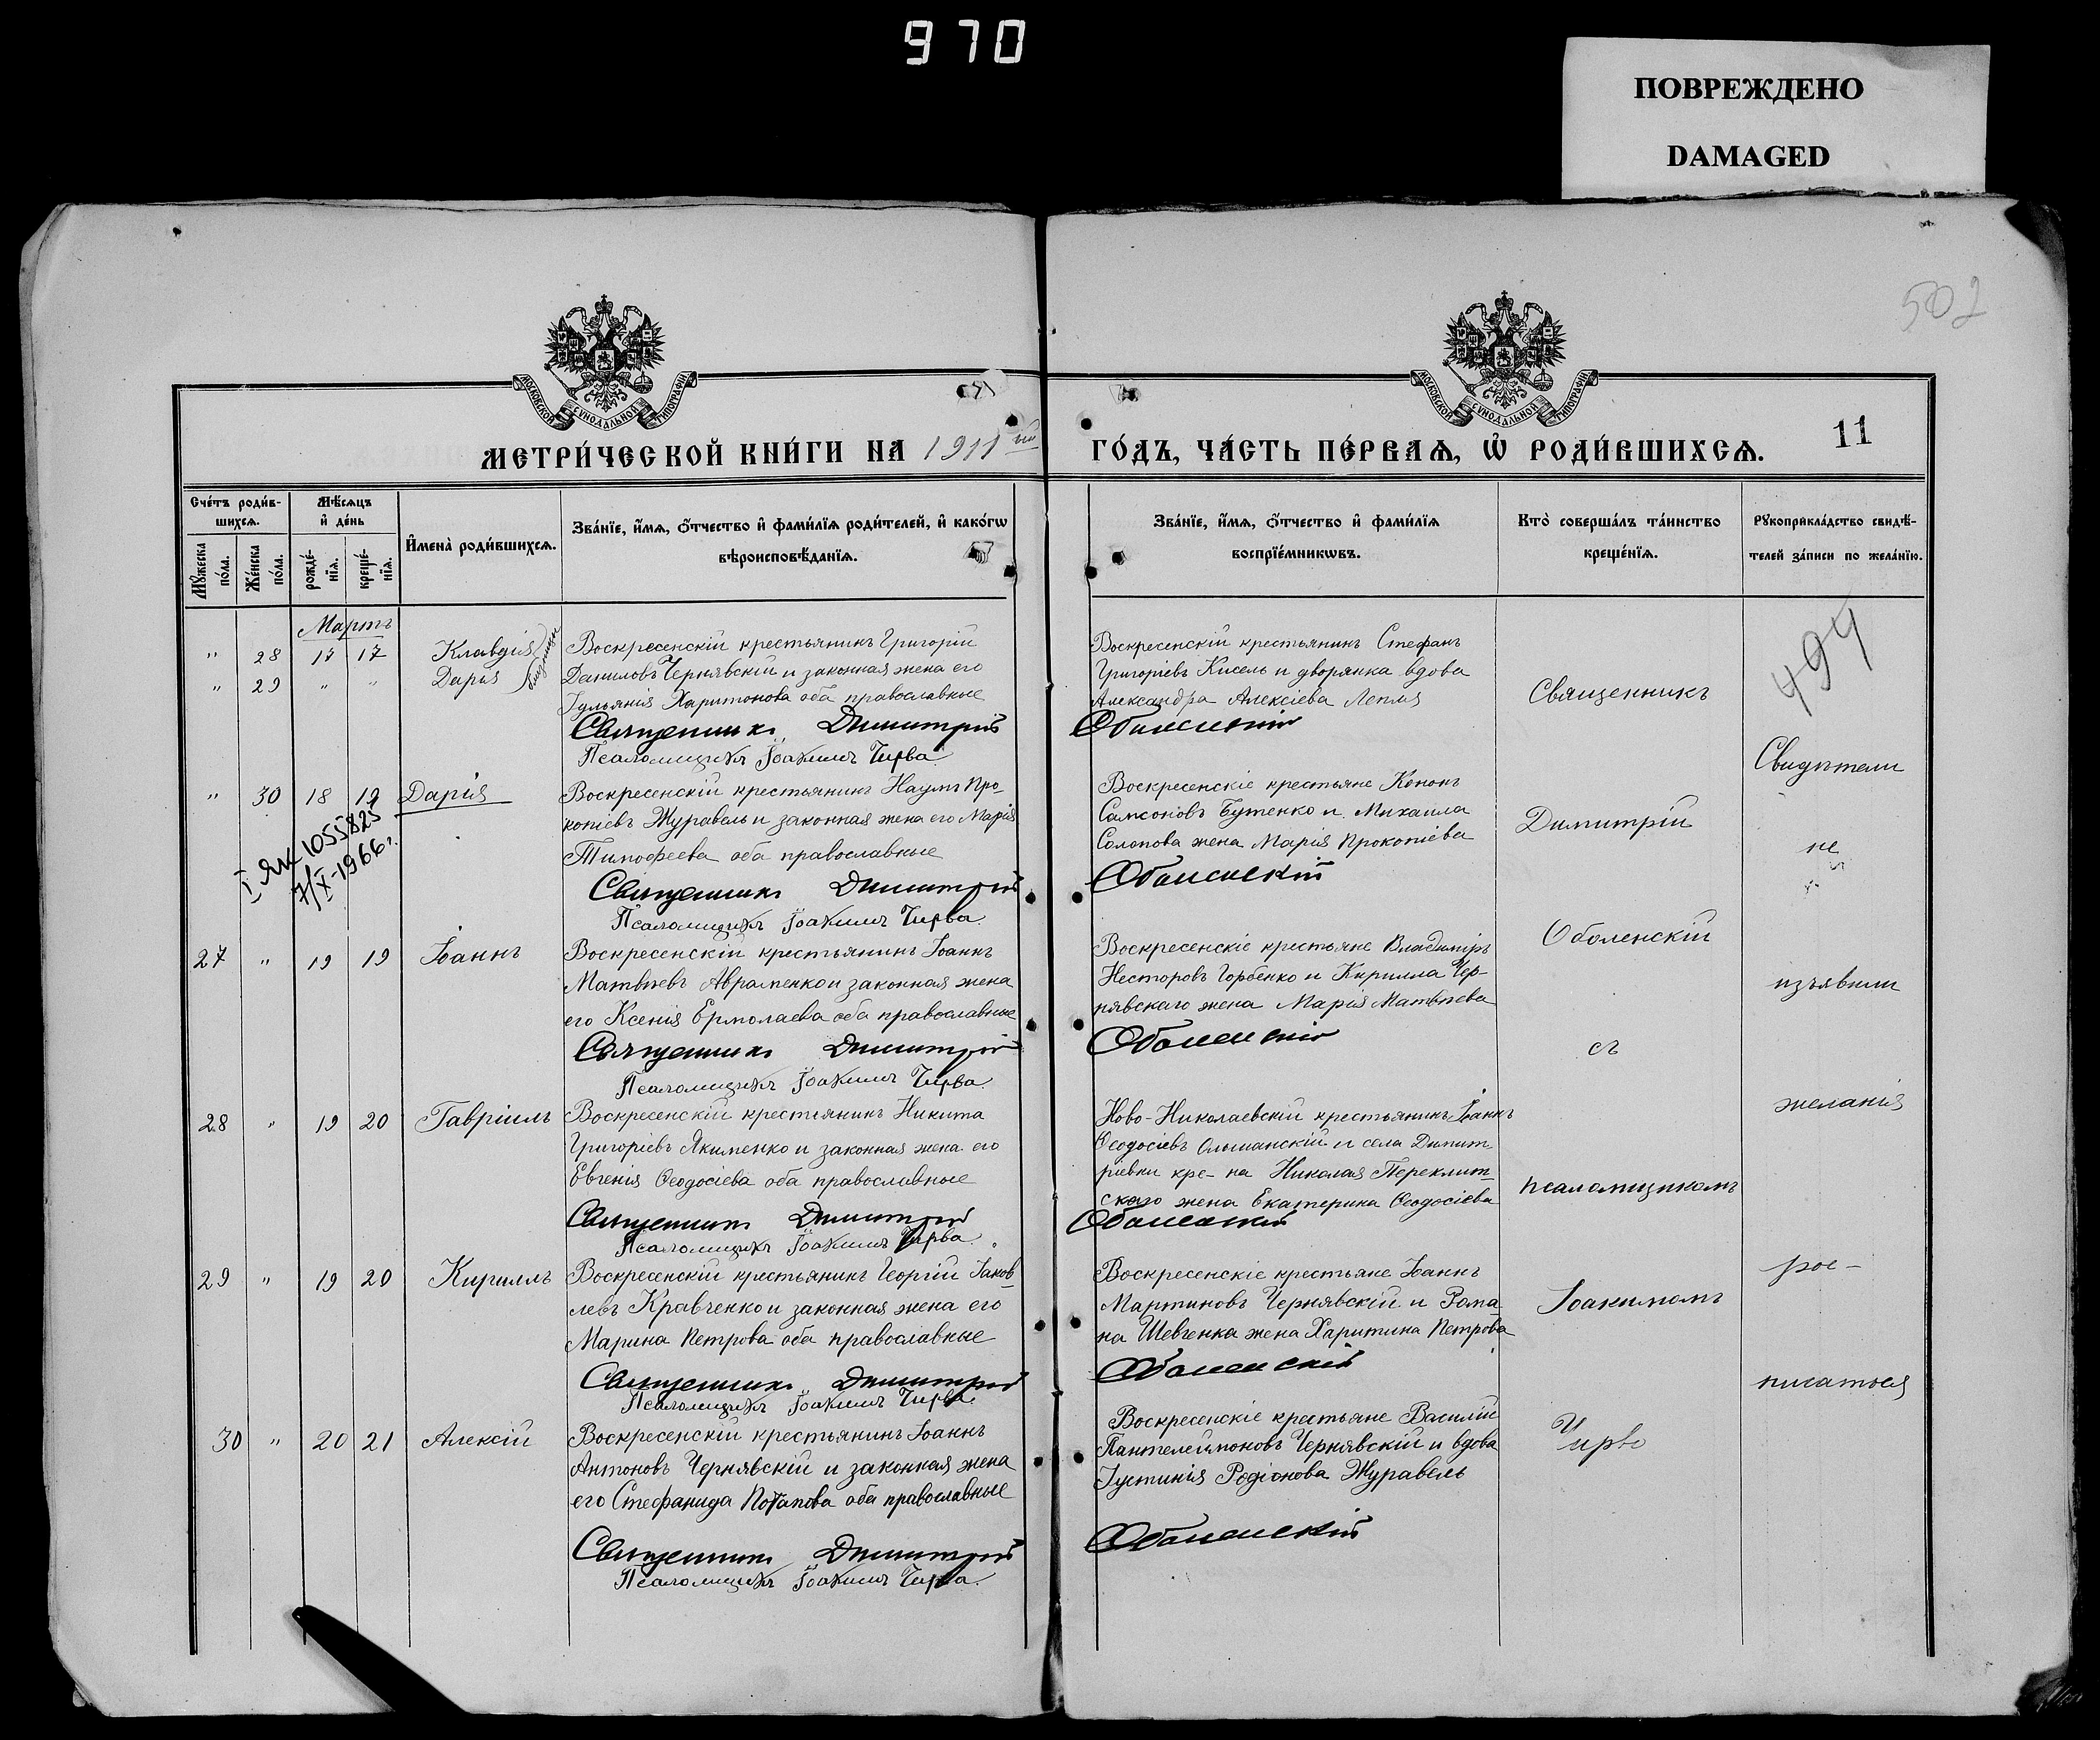 970
ПОВРЕЖДЕНО
DAMAGED
502
МОСКОВСКОЙ СУНОДАЛЬНОЙ ТИПОГРАФІИ
МОСКОВСКОЙ СУНОДАЛЬНОЙ ТИПОГРАФІИ
МЕТРИ́ЧЕСКОЙ КНИ́ГИ НА 1911ый ГО́ДЪ, ЧА́СТЬ ПЕ́РВАѦ, Ѡ҆ РОДИ́ВШИХСѦ.
11
Сче́тъ роди́в-
шихсѧ.
Мѣ́сѧцъ
и҆ де́нь
Мꙋ́жеска по́ла.
Же́нска по́ла.
рожде́-
нїѧ.
креще́-
нїѧ.
И҆мена̀ роди́вшихсѧ.
Зва́нїе, и҆́мѧ, ѻ҆́тчество и҆ фами́лїѧ роди́телей, и҆ како́гѡ
вѣроисповѣ́данїѧ.
Зва́нїе, и҆́мѧ, ѻ҆́тчество и҆ фами́лїѧ
воспрїе́мникѡвъ.
Кто̀ соверша́лъ та́инство
креще́нїѧ.
Рꙋкоприкла́дство свидѣ́-
телей за́писи по жела́нїю.
Мартъ
" 28 17 17 Клавдія
" 29 " " Дарья
близнецы
Воскресенскій крестьянинъ Григорій
Даниловъ Чернявскій и законная жена его
Іульянія Харитонова оба православные
Священникъ Димитрій
Псаломщикъ Іоакимъ Чирва
Воскресенскій крестьянинъ Стефанъ
Григоріевъ Кисель и дворянка вдова
Александра Алексіева Лепля
Оболенскій
" 30 18 19 Дарія
I ЯК 1055825
7/X-1966г.
Воскресенскій крестьянинъ Наумъ Про-
копіевъ Журавель и законная жена его Марія
Тимофеева оба православные
Священникъ Димитрій
Псаломщикъ Іоакимъ Чирва
Воскресенскіе крестьяне Кононъ
Самсоновъ Бутенко и Михаила
Солопова жена Марія Прокопіева
Оболенскій
27 " 19 19 Іоаннъ
Воскресенскій крестьянинъ Іоаннъ
Матвѣевъ Авраменко и законная жена
его Ксенія Ермолаева оба православные
Священникъ Димитрій
Псаломщикъ Іоакимъ Чирва
Воскресенскіе крестьяне Владиміръ
Несторовъ Горбенко и Кирилла Чер-
нявскаго жена Марія Матвѣева
Оболенскій
28 " 19 20 Гавріилъ
Воскресенскій крестьянинъ Никита
Григоріевъ Якименко и законная жена его
Евгенія Ѳеодосіева оба православные
Священникъ Димитрій
Псаломщикъ Іоакимъ Чирва
Ново-Николаевскій крестьянинъ Іоаннъ
Ѳеодосіевъ Ольшанскій и села Димит-
ріевки кре-на Николая Переклит-
скаго жена Екатерина Ѳеодосіева
Оболенскій
29 " 19 20 Кириллъ
Воскресенскій крестьянинъ Георгій Іаков-
левъ Кравченко и законная жена его
Марина Петрова оба православные
Священникъ Димитрій
Псаломщикъ Іоакимъ Чирва
Воскресенскіе крестьяне Іоаннъ
Мартиновъ Чернявскій и Рома-
на Шевченка жена Харитина Петрова
Оболенскій
30 " 20 21 Алексій
Воскресенскій крестьянинъ Іоаннъ
Антоновъ Чернявскій и законная жена
его Стефанида Потапова оба православные
Священникъ Димитрій
Псаломщикъ Іоакимъ Чирва
Воскресенскіе крестьяне Василій
Пантелеймоновъ Чернявскій и вдова
Іустинія Родіонова Журавель
Оболенскій
Священникъ
Димитрій
Оболенскій
съ
псаломщикомъ
Іоакимомъ
Чирво
494
Свидѣтели
не
изъявили
желанія
рос-
писаться